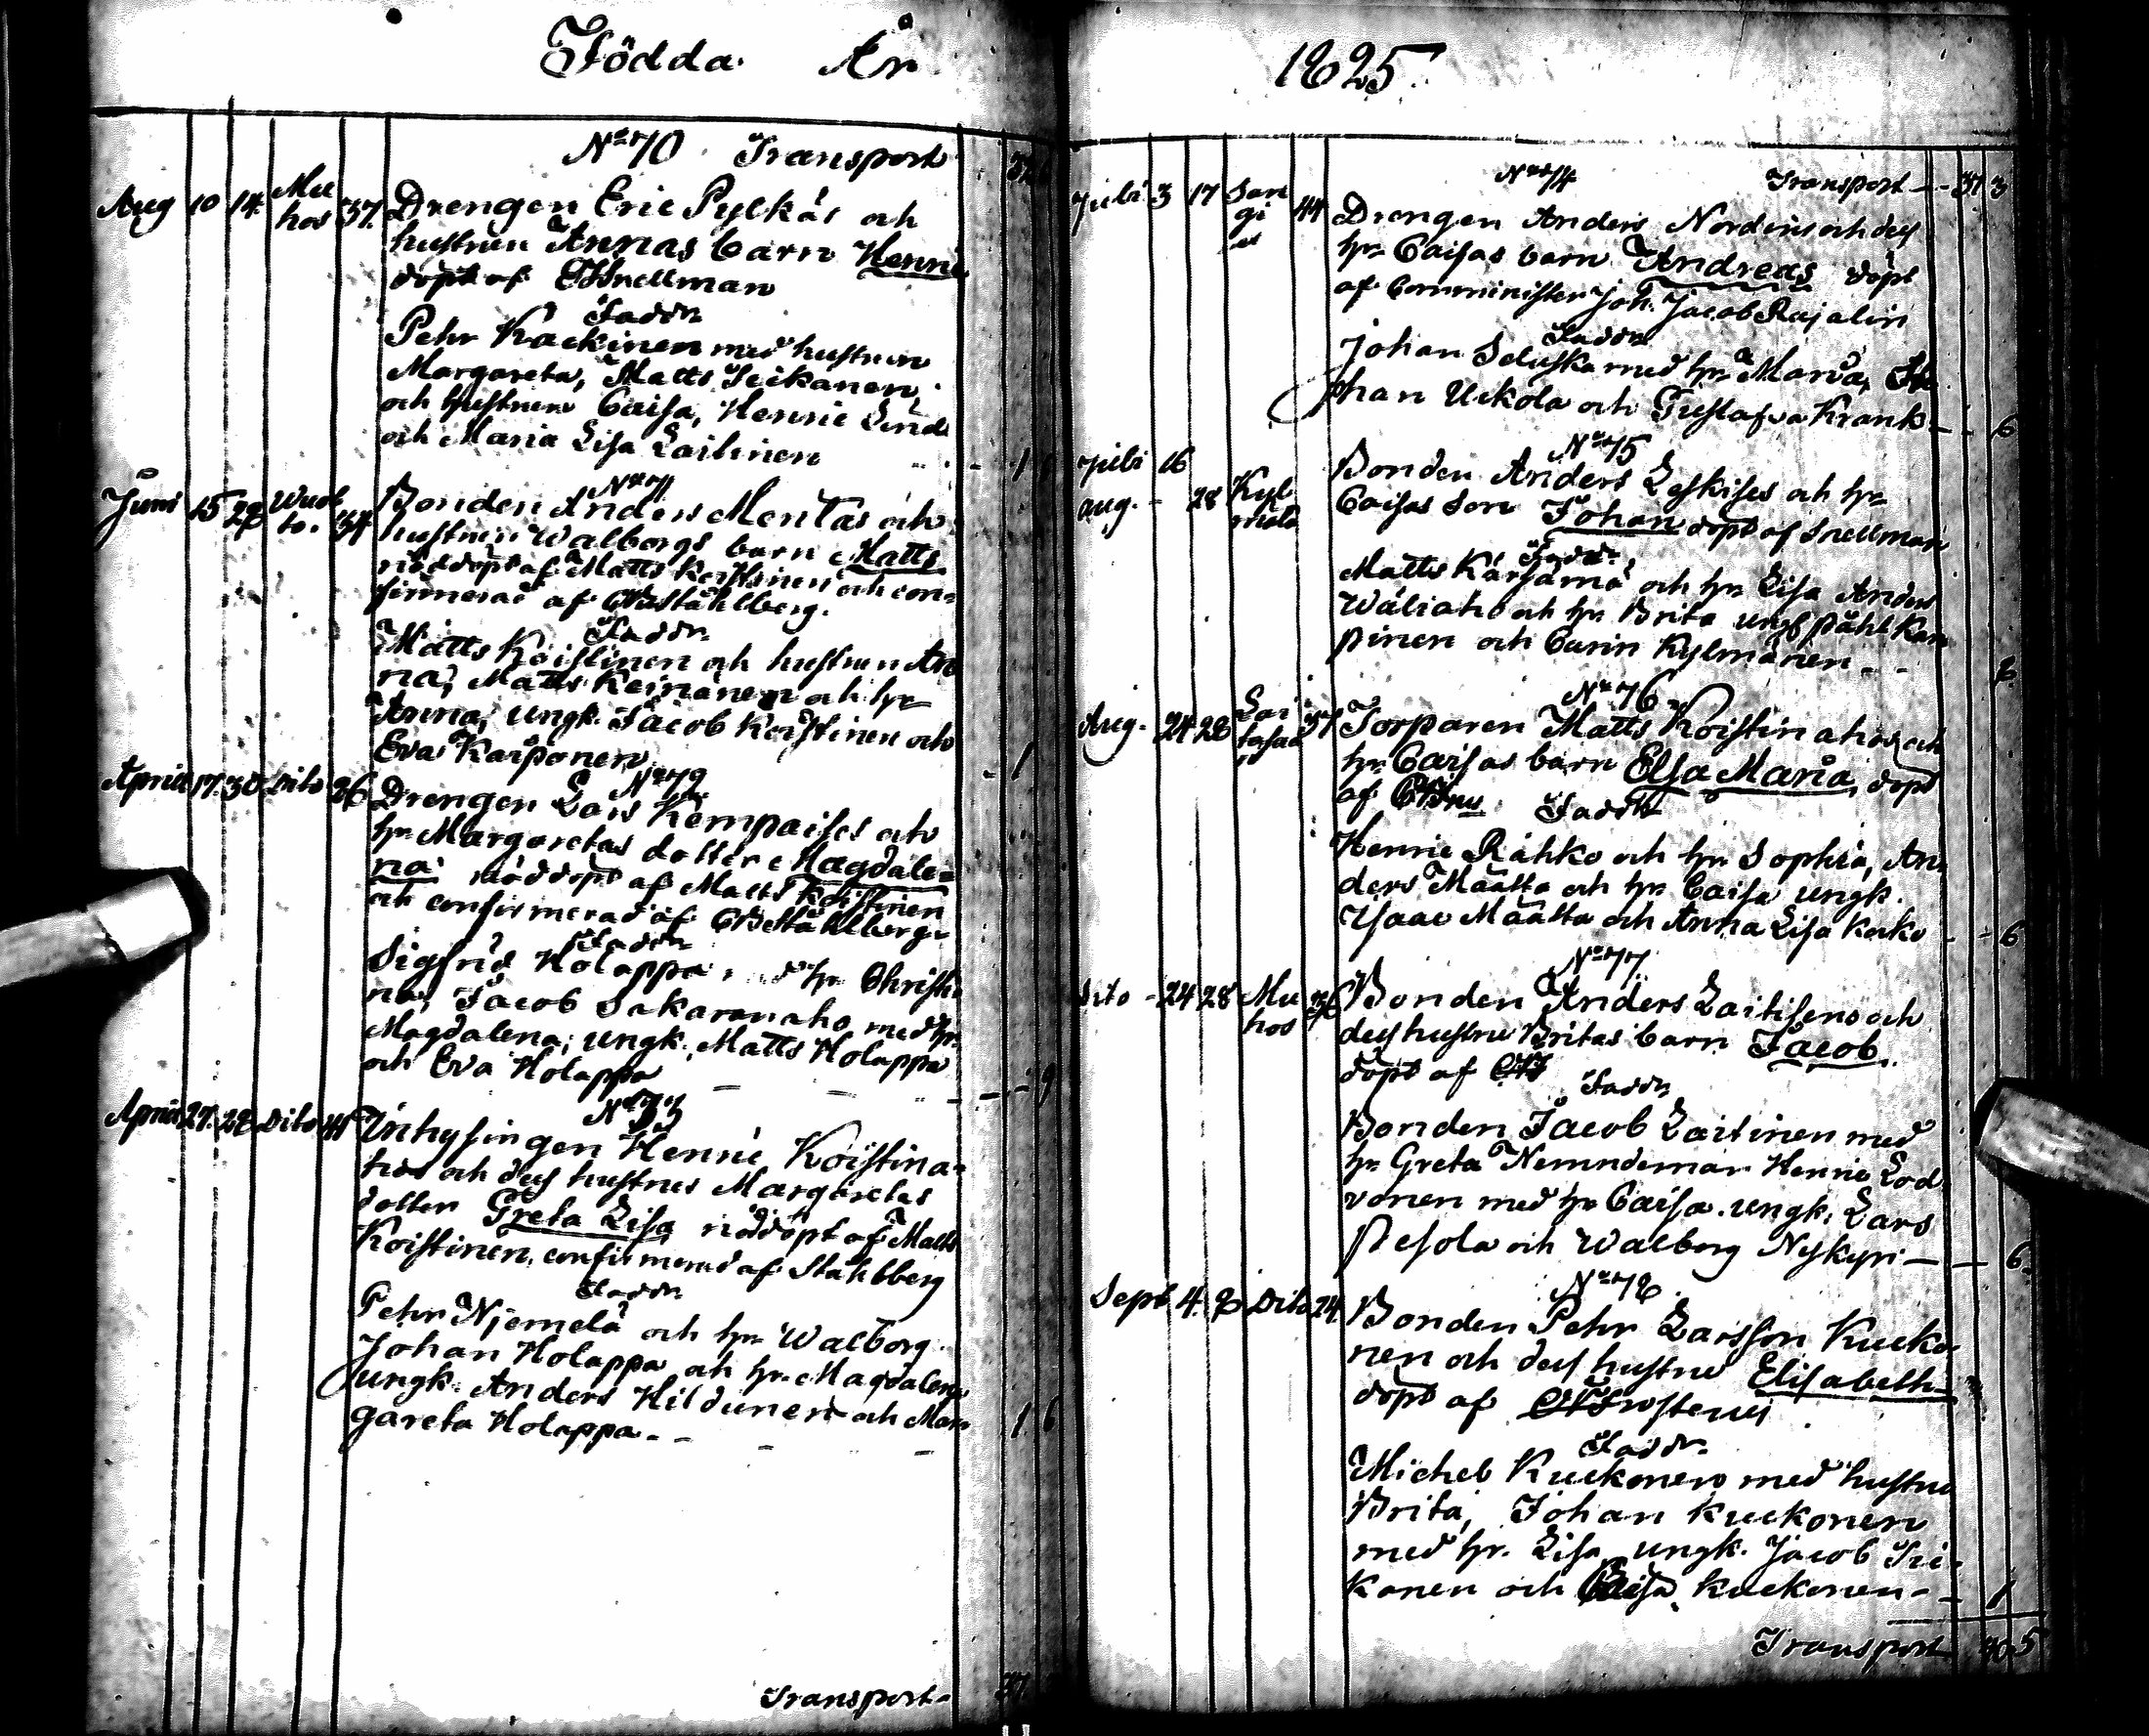 Födda År
No 70 Transport
Aug 10 14 Mu
hos 37. Drengen Eric Pylkäs och
hustrun Annas barn Henric
döpt af Snellman
Faddr.
Pehr Kackinen med hustrun
Margareta, Matts Teikanen,
och hustrun Caisa, Henric Lind
och Maria Lisa Laitinen
No 71
Juni 15 28 34 Bonden Anders Mentas och
hustrun Walborgs barn Matts
nöddöpt af Matts Koistinen och con-
firmerad af Ståhlberg.
Faddr.
Matts Koistinen och hustrun An
na, Matts Keinänen och hr
Anna, ungk. Jacob Koistinen och
Eva Karponen
No 72
April 17. 30 Dito 26 Drengen Lars Kempaises och
hr Margaretas dotter Magdale-
na nöddöpt af Matts Koistinen
och confirmerad af Ståhlberg
Faddr.
Sigfrid Holappa hr Christi
na, Jacob Sakaranaho med hr
Magdalena, ungk. Matts Holappa
och Eva Holappa - - 9
No 73
April 27. 28 Dito 41 Inhysingen Henric Koistina-
hos och des hustrus Margaretas
dotter Greta Lisa nöddöpt af Matts
Koistinen, confirmerad af Ståhlberg
Faddr.
Pehr Njemelä och hr Walborg
Johan Holappa och hr Magdalena
ungk. Anders Hildunen och Mar
gareta Holappa - - 1 6
Transport - 37
1825.
No 74 Transport - - 37 3
Julii 3 17 San
gi 44 Drengen Anders Nordins och des
hr Caisas barn Andreas döpt
af Comminister Joh. Jacob Rajalin
Faddr.
Johan Seluska med hr Maria, Jo
han Uckola och Gustafva Krank - - 6
No 75
Julii 16
aug. - 28 Kyl
mälä Bonden Anders Leskises och hr
Caisas son Johan döpt af Snellman
Faddr.
Matts Kärsämä och hr Lisa Anders
Wäliaho och hr Brita ungk Påhl Kar
pinen och Carin Kylmänen - -
No 76
Aug. 24 28 Lai
tasaa 37 Torparen Matts Koistinahos och
hr Caisas barn Elsa Maria, döpt
af Faddr
Henric Rähkö och hr Sophia, An
ders Määttä och hr Caisa ungk.
Isaac Määttä och Anna Lisa Korko - - 6
No 77
Dito - 24 28 Mu
hos 36 Bonden Anders Laitisens och
des hustru Britas barn Jacob
döpt af
Faddr
Bonden Jacob Laitinen med
hr Greta Nemndeman Henric Lod
vonen med hr Caisa. ungk. Lars
Pesola och Walborg Nykyri - - 6
No 78
Sept 4. 8 Dito 24. Bonden Pehr Larsson Kucko
nen och des hustru Elisabeth
döpt af Frosterus
Faddr.
Michel Kuckonen med hustru
Brita, Johan Kuckonen
med hr. Lisa, ungk. Jacob Tei
kanen och Caisa Kuckonen - - 1
Transport 5